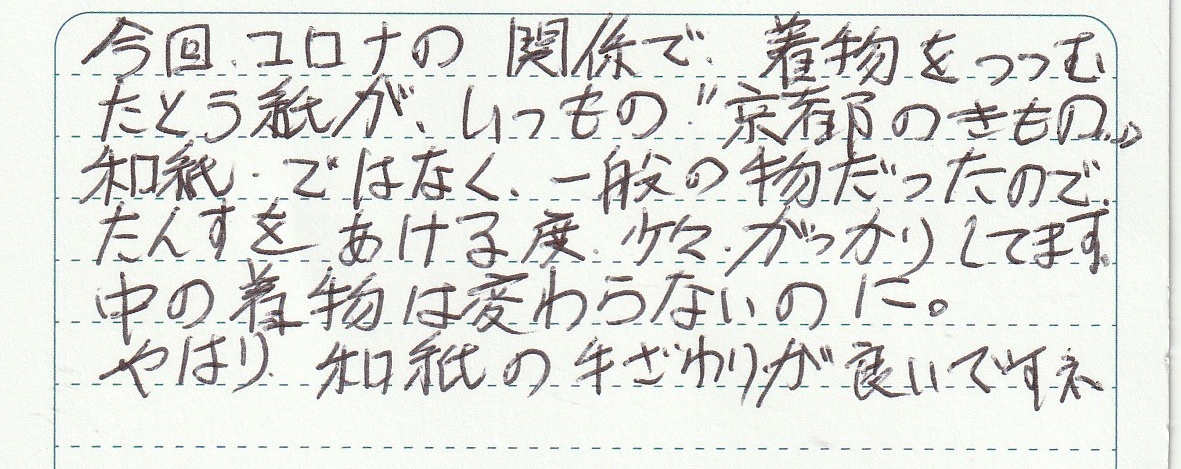 今回、コロナの関係で、着物をつつむ
たとう紙が、いつもの“京都のきもの„
和紙、ではなく、一般の物だったので、
たんすをあける度、少々、がっかりしてます。
中の着物は変わらないのに。
やはり、和紙の手ざわりが良いですネ